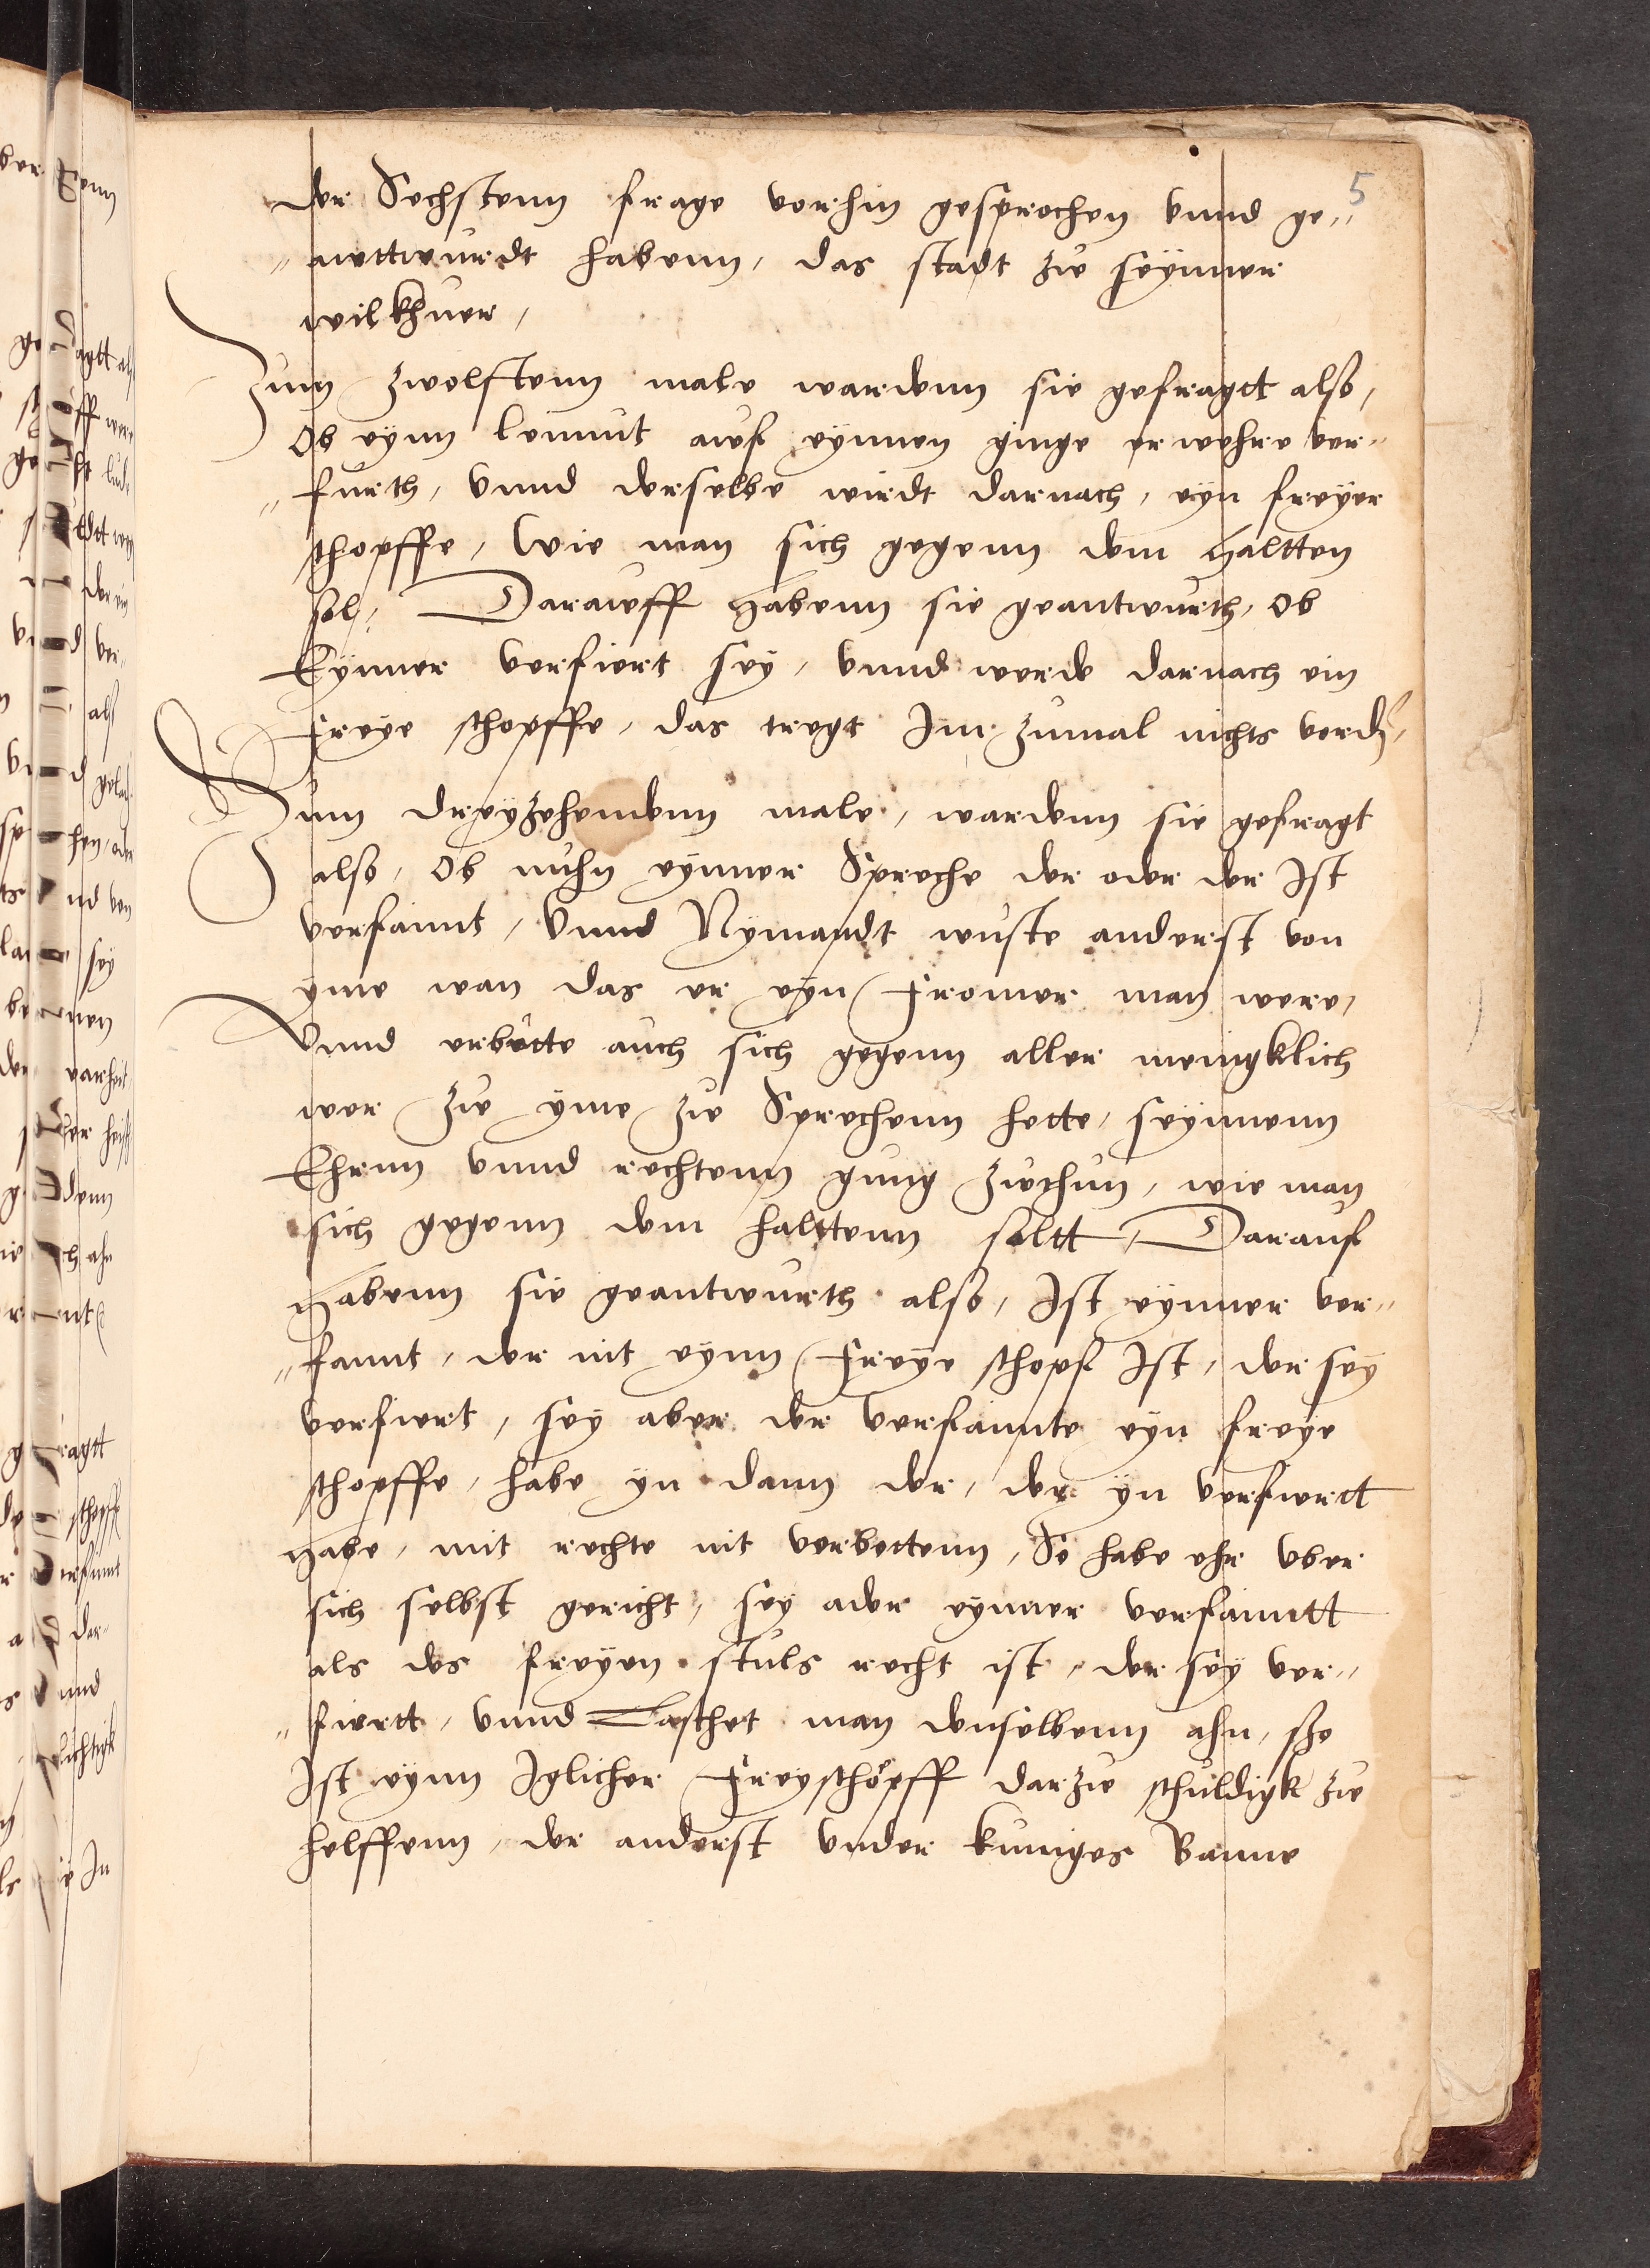 5
der Sechstenn frage vorhin gesprochen vnnd ge„
„antwurdt habenn, das stadt zu seynner
wilkhuer,
Zum zwolfftenn male wardenn sie gefragtt also,
Ob eynn leumut auf eynnen ginge er wehre ver„
„furth, vnnd derselbe wirdt darnach, eyn freyer
schopffe, Wie man sich gegenn dem haltten
sol, Darauff habenn sie geantwurth, Ob
Eynner verfiert sey, vnnd werde darnach ein
freye schopffe, das tregt Im zumal nichts
Zum dreyzehendenn male, wardenn sie gefragt
also, Ob nuhn eynner Spreche der oder der Ist
verfaimt, Vnnd Nymandt wuste anderst von
yme wan das er eyn fromer man were,
Vnnd erbutte auch sich gegenn aller menigklich
wer zu yme zu Sprechenn hette, seynnenn
Ehrnn vnnd rechtenn gnug zuthun, wie man
sich gegenn dem halttenn soltt, Darauf
habenn sie geantwurth also, Ist eynner ver„
„faimt, der nit eynn freye schopf Ist, der sey
verfiert, sey aber der verfaimte eyn freye
schopffe, habe yn dann der, der yn verfiertt
habe, mit rechte nit verbottenn, So habe ehr vber
sich selbst gericht, sey ader eynner verfaimtt
als des freyen stuls recht ist, der sey ver„
„fiertt, vnnd Taschet man denselbenn ahn, sho
Ist eynn Iglicher freyschöpff darzu schuldigk zu
helffenn, der anderst vnder kuniges Banne